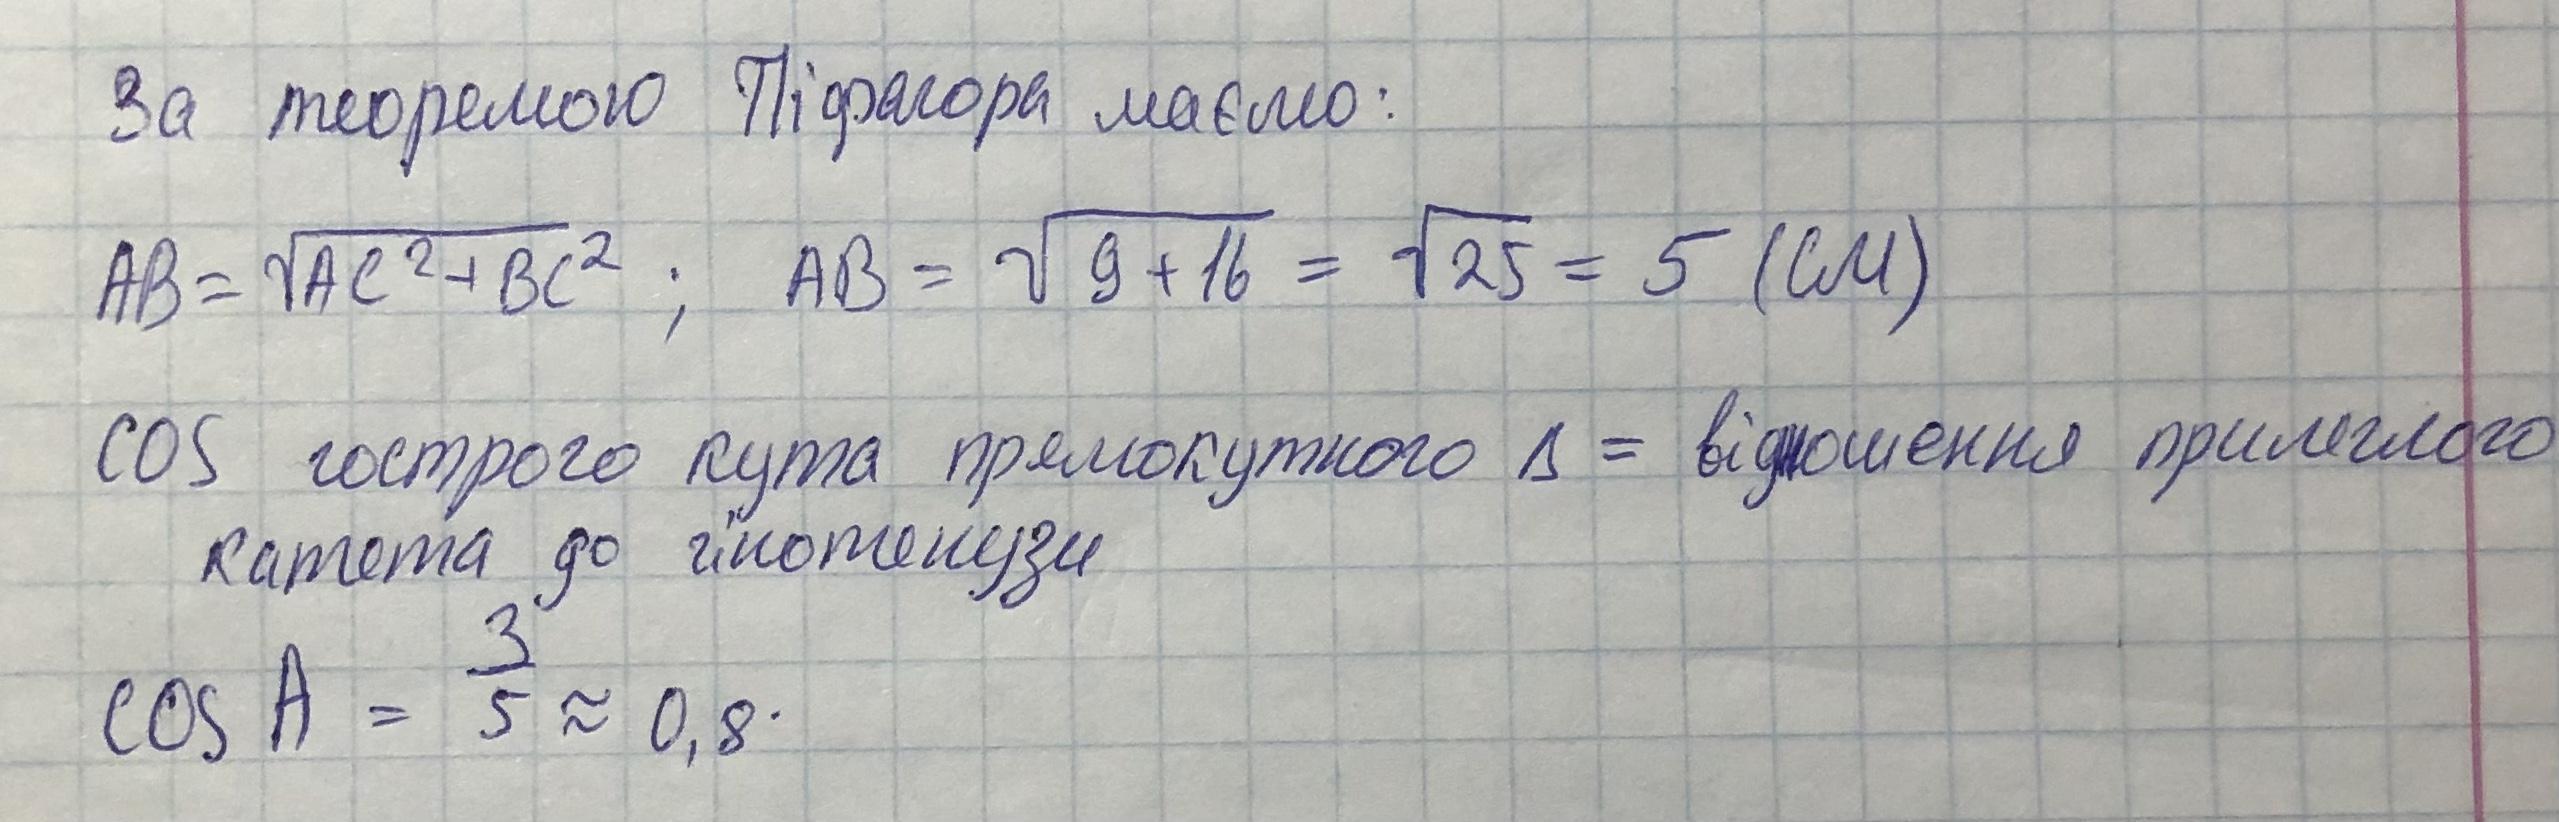 За теоремою Піфагора маємо:
AB = √AC²+BC² ; AB = √9+16 = √25 = 5 (см)
cos гострого кута прямокутного Δ = відношення прилеглого
катета до гіпотенузи
cos A = 3/5 ≈ 0,8.